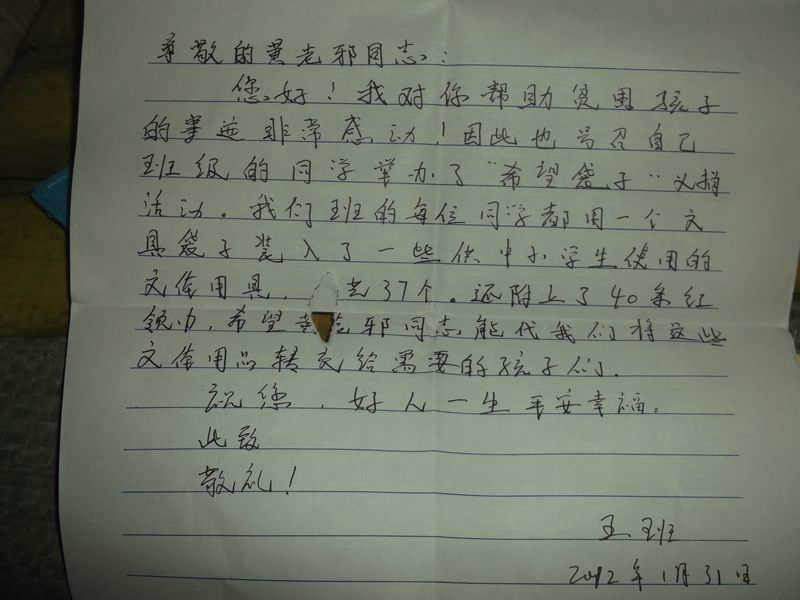 尊敬的黄老邪同志:
您好!我对你帮助贫困孩子
的事迹非常感动!因此也号召自己
班级的同学举办了“希望袋子”义捐
活动。我们班的每位同学都用一个文
具袋子装入了一些供中小学生使用的
文体用具, 共37个。还附上了40条红
领巾,希望黄老邪同志能代我们将这些
文体用品转交给需要的孩子们.
祝您,好人一生平安幸福。
此致
敬礼!
王班
2012年1月31日